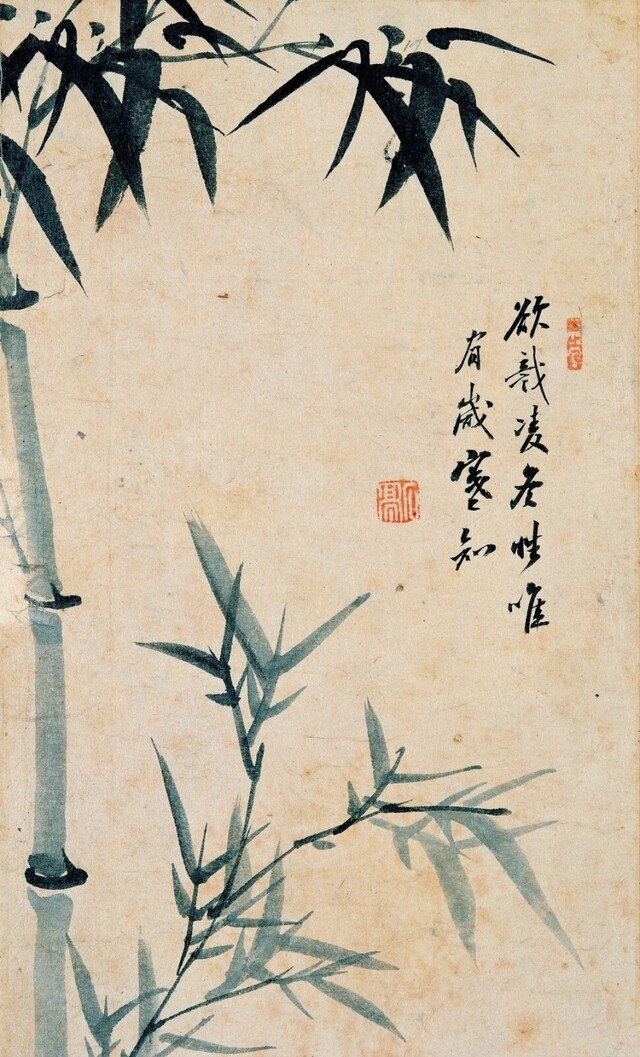 欲識凌冬性唯
有歲寒知